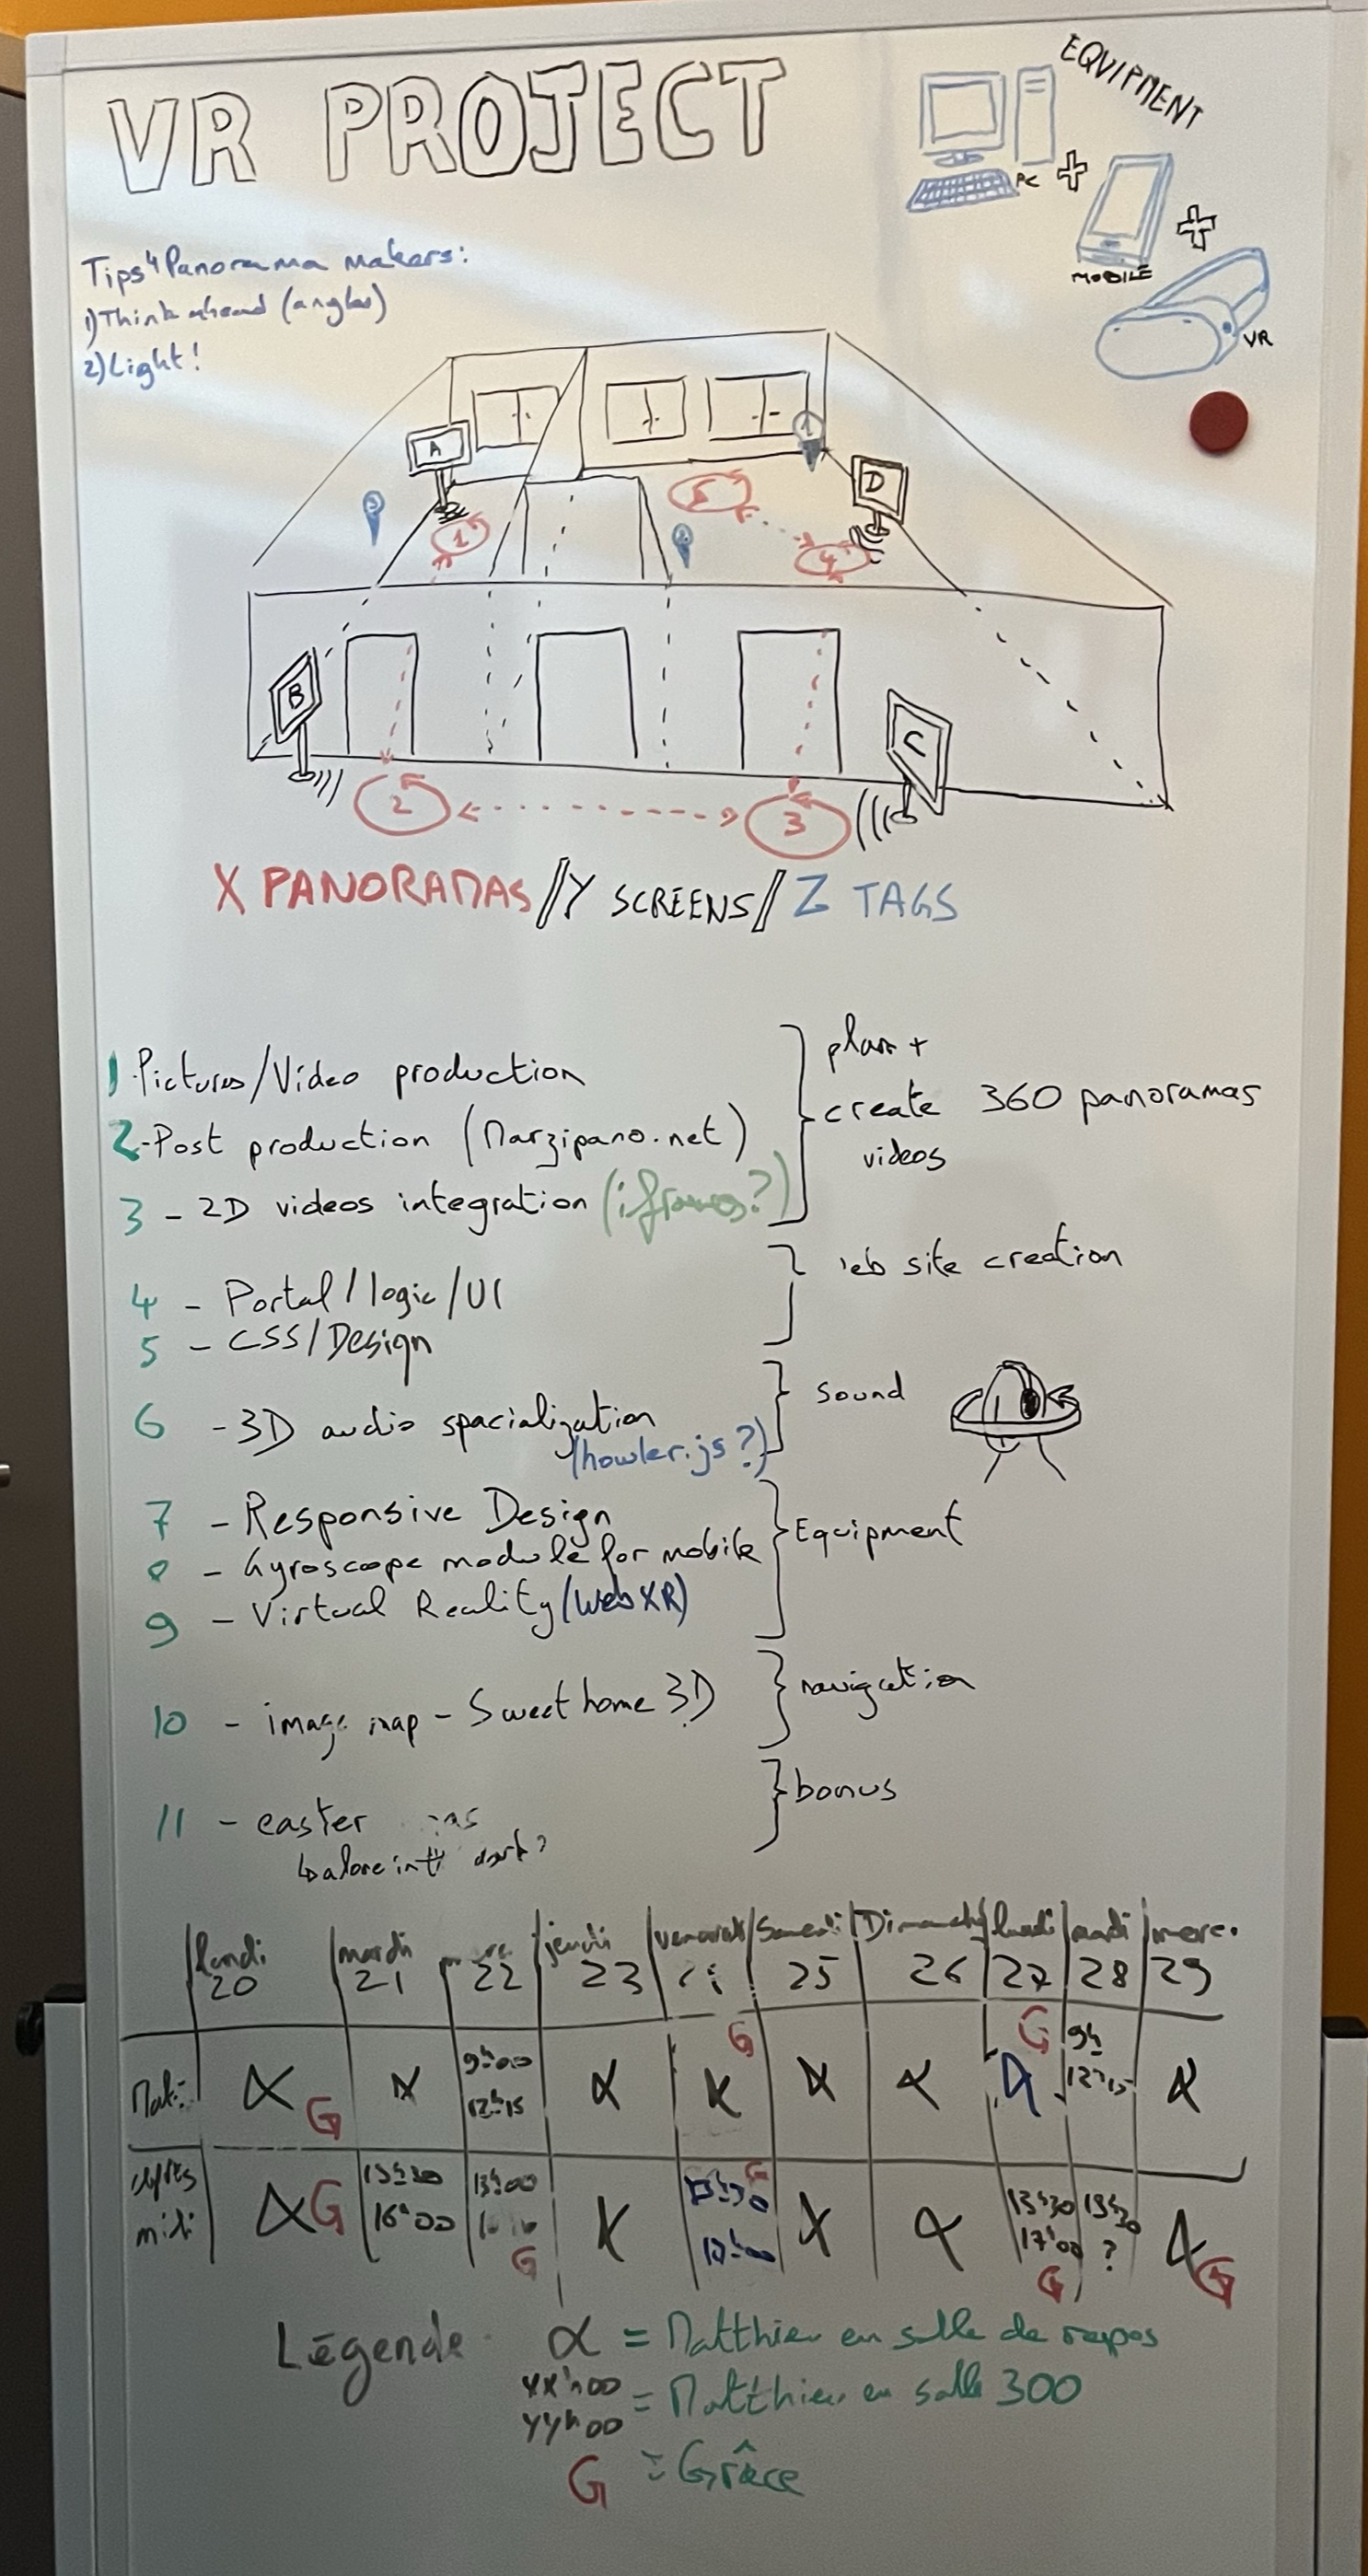 VR PROJECT
EQUIPMENT
PC
MOBILE
VR
Tips 4 Panorama makers:
1) Think ahead (angles)
2) Light!
A
D
1
5
4
B
C
2
3
X PANORAMAS // Y SCREENS // Z TAGS
1 Pictures/Video production
2-Post production (Marzipano.net)
3 - 2D videos integration (iframes?)
plan +
create 360 panoramas
videos
4 - Portal / logic / UI
5 - CSS / Design
site creation
6 - 3D audio spacialization
(howler.js?)
sound
7 - Responsive Design
8 - Gyroscope module for mobile
9 - Virtual Reality (WebXR)
Equipment
10 - image map - Sweet home 3D
navigation
11 - easter
alone in the dark?
bonus
lundi mardi jeudi vendredi Samedi Dimanche lundi mardi merc.
20 21 22 23 25 26 27 28 29
α G α 9h00 α α G α α α G 9h α
12h15 12h15
après
midi
α G 13h30 13h00 α G α α 13h30 13h30 α G
16h00 G 17h00 ?
G
Légende α = Matthieu en salle de repos
XXh00
YYh00 = Matthieu en salle 300
G = Grâce